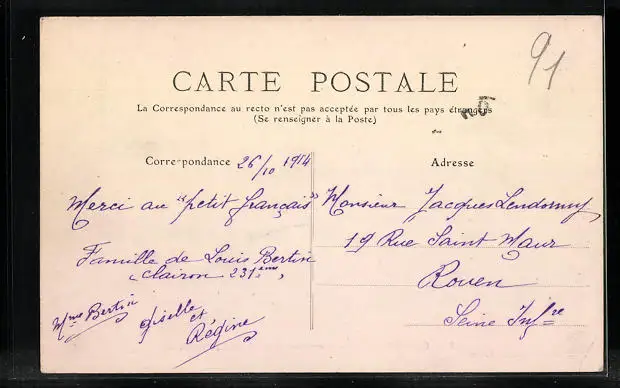 91
CARTE POSTALE
La Correspondance au recto n'est pas acceptée par tous les pays étrangers
(Se renseigner à la Poste)
Correspondance 26/10 1914
Merci au "petit français"
Famille de Louis Bertin
clairon 231ème,
Mme Bertin
Giselle et
Régine
Adresse
Monsieur Jacques
19 Rue Saint Maur
Rouen
Seine Infre